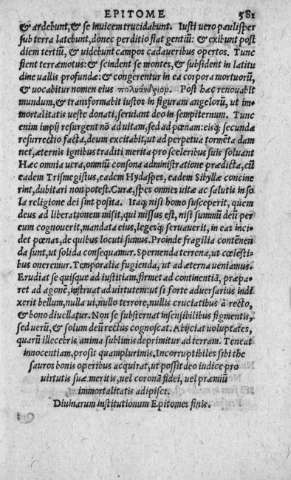 EPITOME 581
& ardebunt, & se inuicem trucidabunt. Iusti uero paulisper
sub terra latebunt, donec perditio fiat gentiũ: & exibunt post
diem tertiũ, & uidebunt campos cadaueribus opertos. Tunc
fient terræmotus: & scindent se montes, & subsident in latitu
dine ualles profundæ: & congerentur in ea corpora mortuorũ,
& uocabitur nomen eius πολυάνδριον. Post hæc renouabit
mundum, & transformabit iustos in figuram angelorũ, ut im-
mortalitatis ueste donati, seruiant deo in sempiternum. Tunc
enim impij resurgent nõ ad uitam, sed ad pœnam: eisq; secunda
resurrectio facta, deum excitabit, ut ad perpetua tormẽta dam
net, æternis ignibus traditi merita pro sceleribus suis soluant
Hæc omnia uera, omniũ consona administratione prædicta, cũ
eadem Trismegistus, eadem Hydaspes, eadem Sibyllæ concine
rint, dubitari non potest. Cura, spes omnes uitæ ac salutis in so
la religione dei sint posita. Itaq; nisi homo susceperit, quem
deus ad liberationem misit, qui missus est, nisi summũ deũ per
eum cognouerit, mandata eius, legeq; seruauerit, in eas inci
det pœnas, de quibus locuti sumus. Proinde fragilia contẽnen
da sunt, ut solida consequamur. Spernenda terrena, ut cœlesti
bus oneremur. Temporalia fugienda, ut ad æterna ueniamus.
Erudiat se quisque ad iustitiam, firmet ad continentiã, præpa
ret ad agonẽ, instruat ad uirtutem: ut si forte aduersarius indi
xerit bellum, nulla ui, nullo terrore, nullis cruciatibus à recto,
& bono diuellatur. Non se substernat insensibilibus figmentis,
sed uerũ, & solum deũ rectus cognoscat. Abijciat uoluptates,
quarũ illecebris, anima sublimis deprimitur ad terram. Teneat
innocentiam, prosit quamplurimis, Incorruptibiles sibi the
sauros bonis operibus acquirat, ut possit deo iudice pro
uirtutis suæ meritis, uel coronã fidei, uel præmiũ
immortalitatis adipisci.
Diuinarum institutionum Epitomes finis.